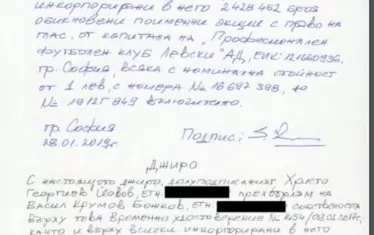 инкорпорирани в него 2428462 броя
обикновени поименни акции с право на
глас, от капитала на „Професионален
футболен клуб Левски" АД, ЕИК:
гр. София, всяка с номинална стойност
от 1 лев, с номера № 16697388, до
№ 19125849 включително.
гр София
28.01.2019г.
Подпис:
Джиро
С настоящото джиро, долуподписаният Христо
Георгиев, ЕГН прехвърлям на
Васил Крумов Божков, ЕГН собствеността
върху това временно удостоверение №
както и върху всички инкорпорирани в него